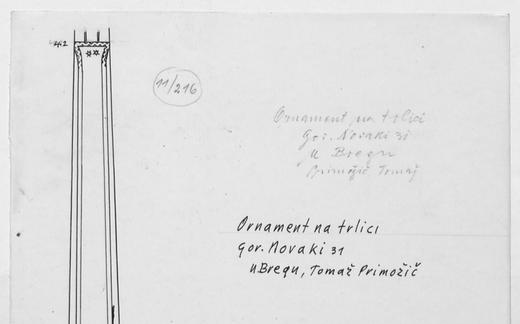 11/216
Ornament na trlici
Gor. Novaki 31
u Bregu
Primožič Tomaž
Ornament na trlici
gor. Novaki 31
u Bregu, Tomaž Primožič